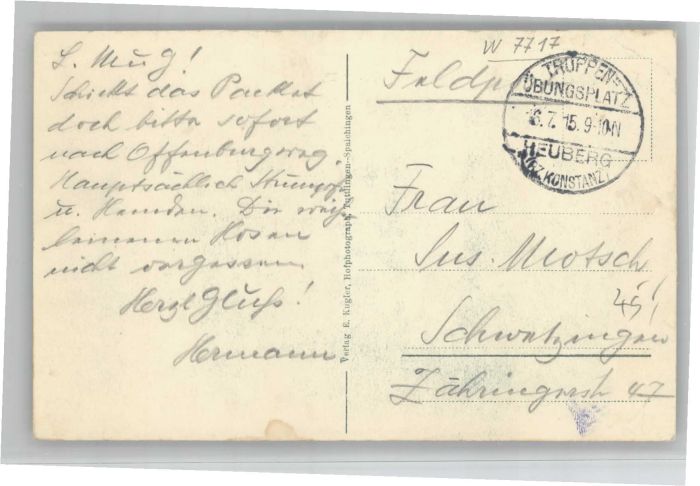 L. Mug!
Schickt das Packet
doch bitte sofort
nach Offenburg
Hauptsächlich Strümpfe
u. Hemden. Die
leinenen Hosen
nicht vergessen
Herzl Gruß!
Hermann
Verlag E. Kugler, Hofphotograph, Tuttlingen-Spaichingen
W 7717
Feldp
TRUPPEN-
ÜBUNGSPLATZ
6.7.15. 9-10N
HEUBERG
(BZ. KONSTANZ)
Frau
Jus. Motsch
45!
Schwetzingen
Zähringerstr 47